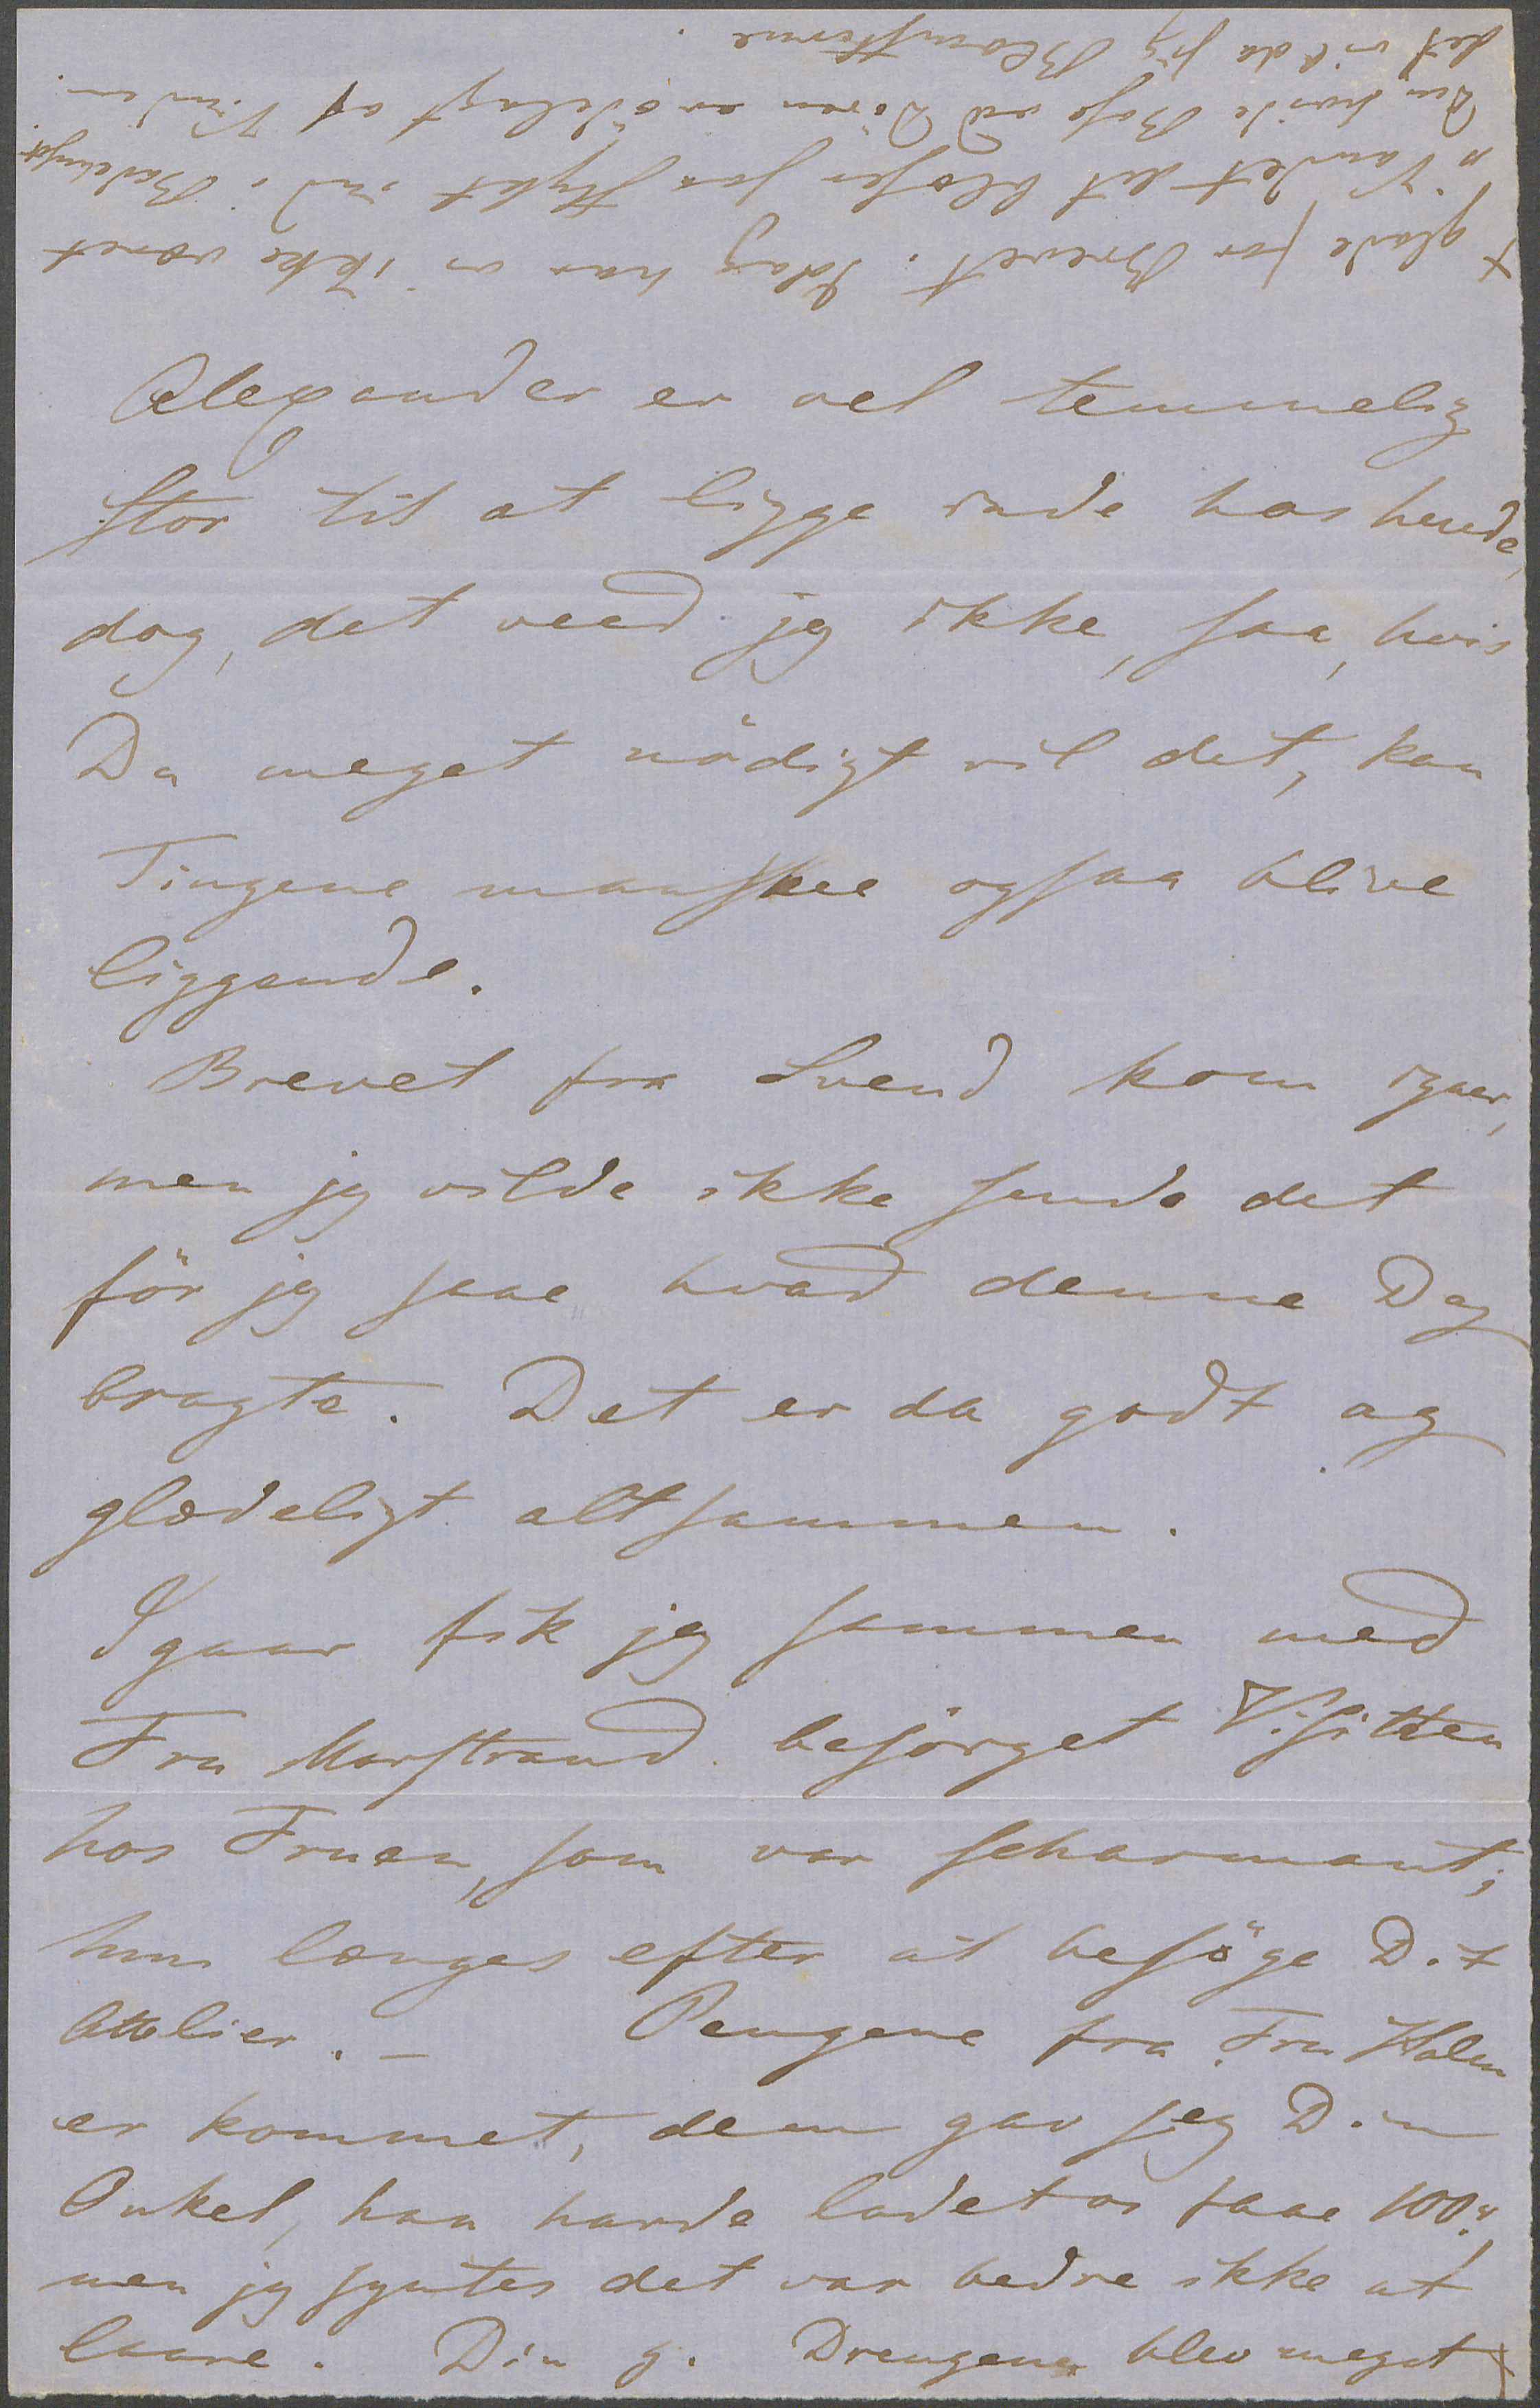 Alexander er vel temmelig
stor til at ligge inde hos hende,
dog, det veed jeg ikke, saa, hvis
Du meget nödigt vil det, kan
Tingene maaskee ogsaa blive
liggende.
Brevet fra Svend kom igaar,
men jeg vilde ikke sende det
för jeg saae hvad denne Dag
bragte. Det er da godt og
glædeligt altsammen.
Igaar fik jeg sammen med
Fru Marstrand besörget Visitten
hos Fruen, som var scharmant;
hun længes efter at besöge Dit
Attelier. — Pengene fra Fru Holm
er kommet, dem gav jeg Din
Onkel, han havde ladet os faae 100
men jeg syntes det var bedre ikke at
laane. Din j. Drengene blev meget +
+ glade for Brevet. Idag har vi ikke været
i Vandet det blæser saa stykt ind i Badehuset.
Den hvide Rose ved Dören er ödelagt af Vinden.
det vil da sig Blomsterne.